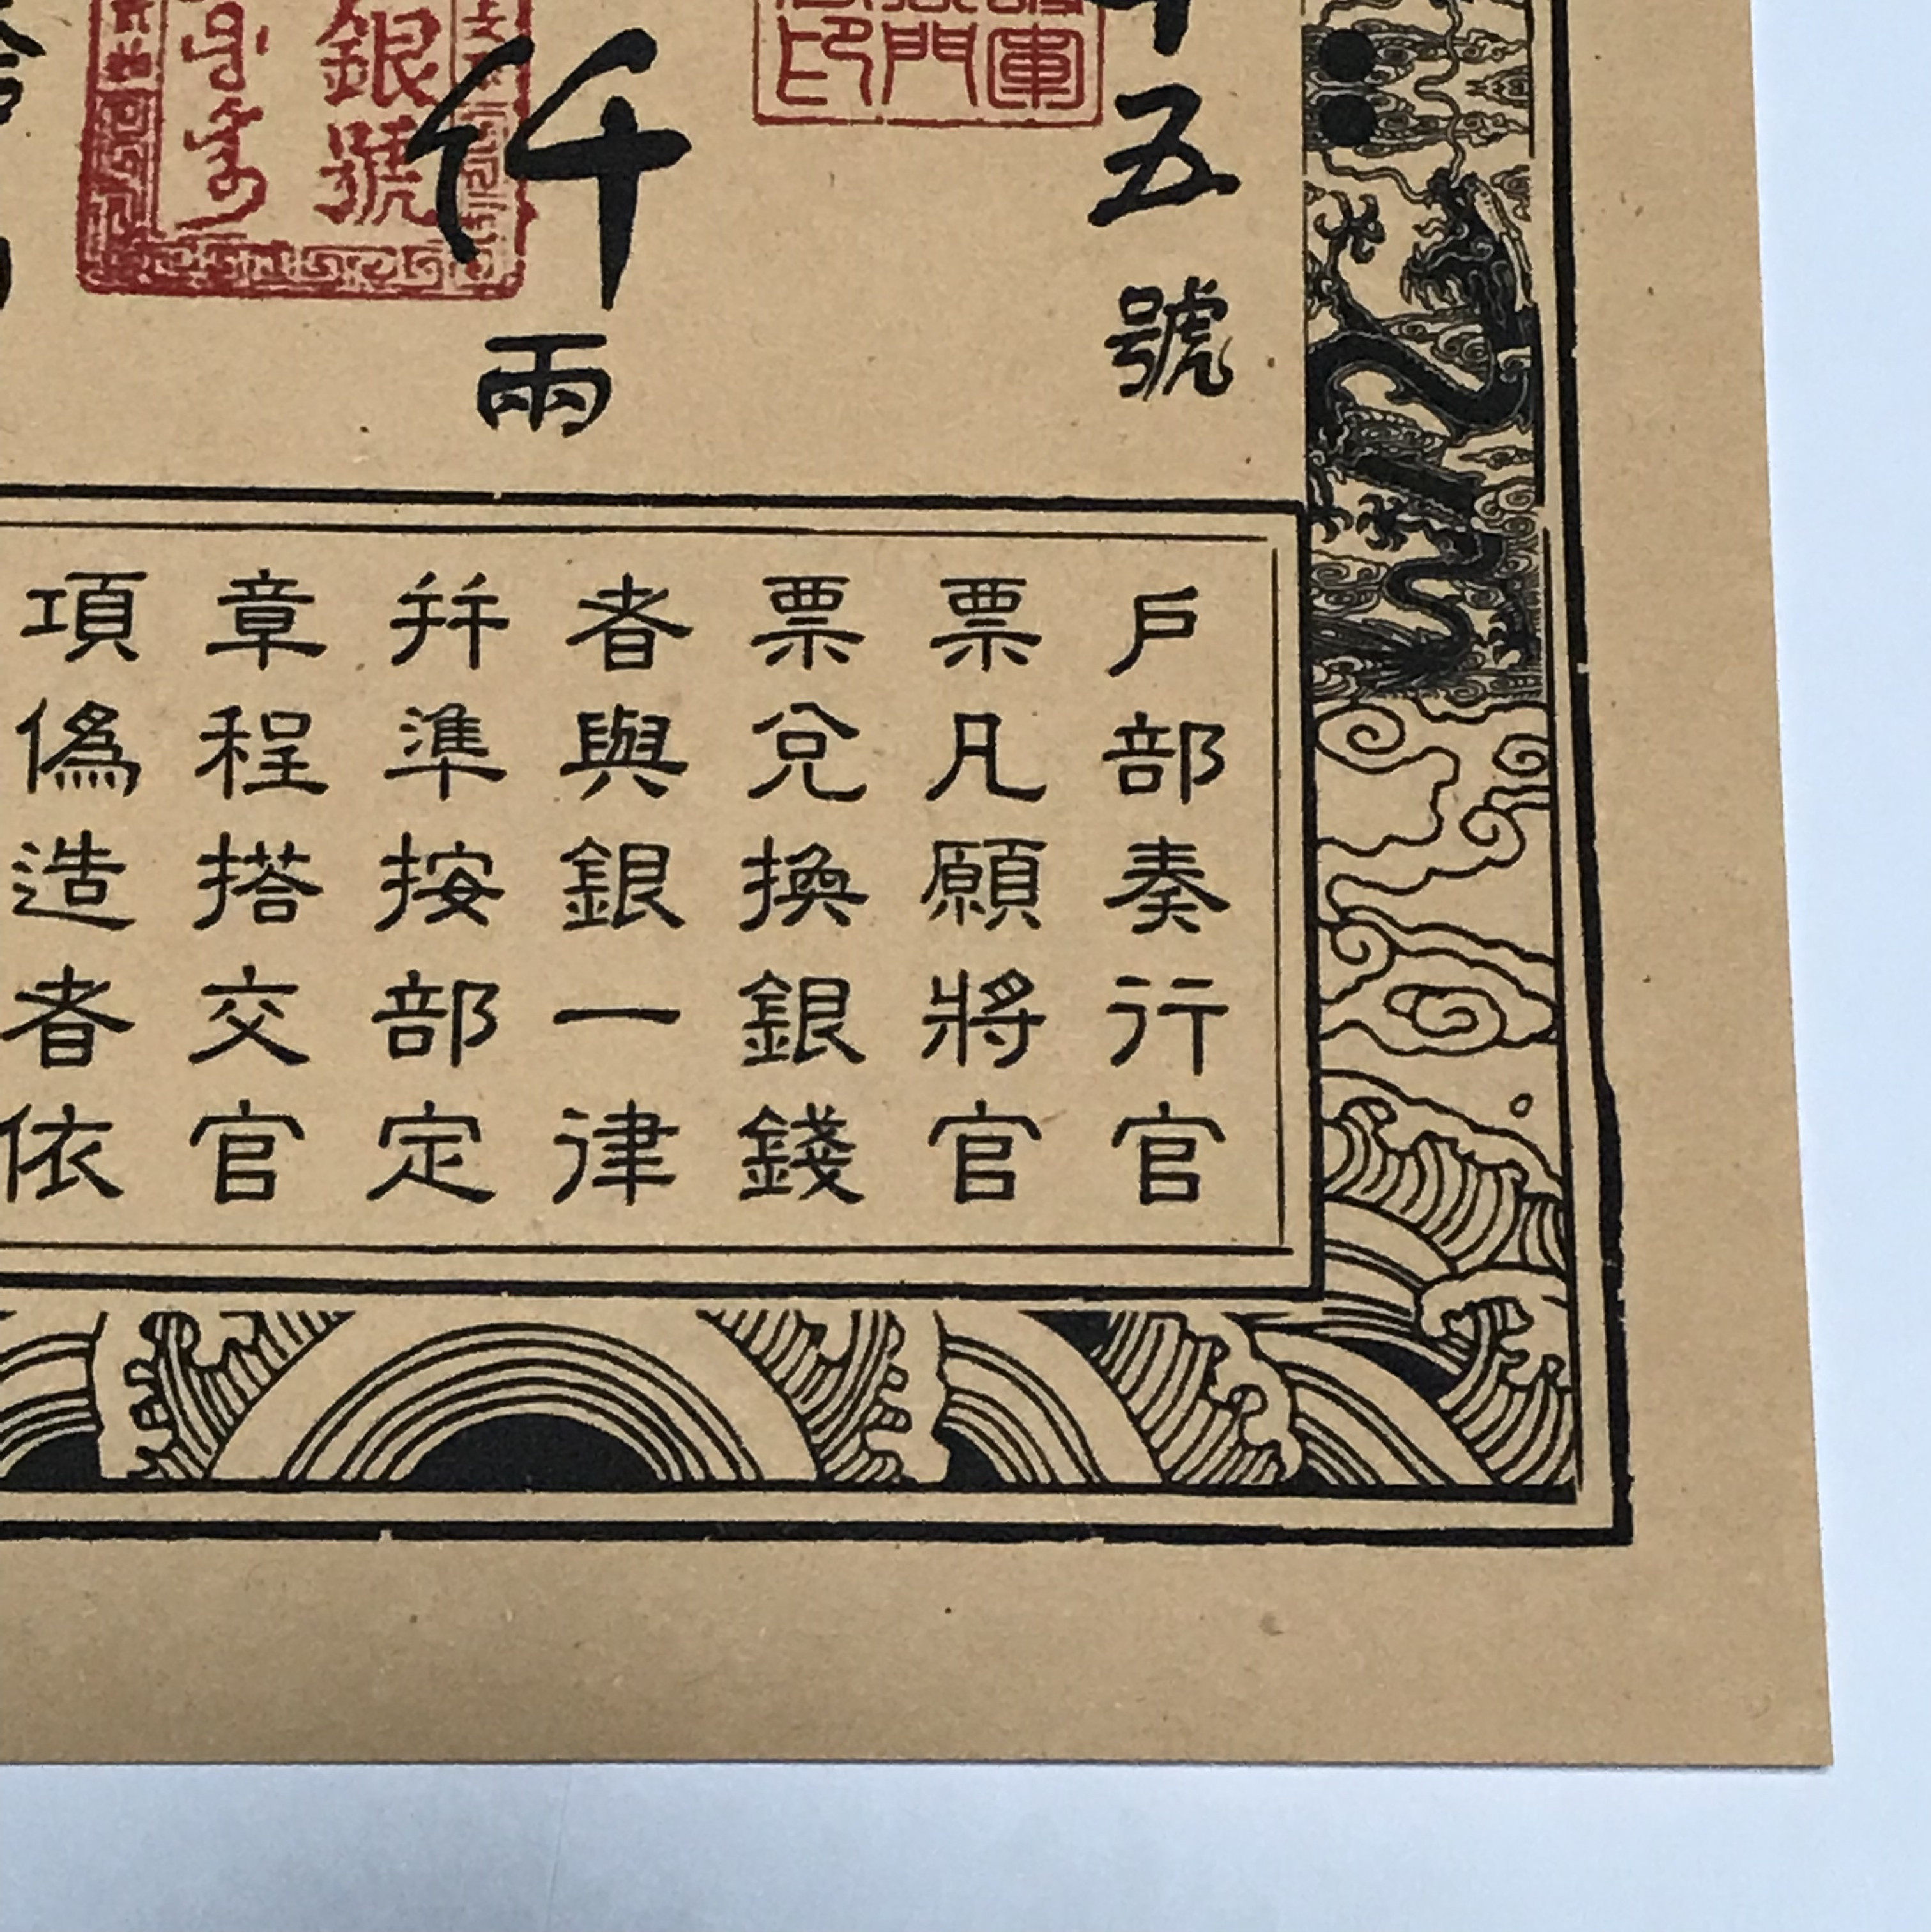 五號
仟兩
銀號
戶部奏行官
票凡願將官
票兌換銀錢
者與銀一律
並準按部定
章程搭交官
項偽造者依